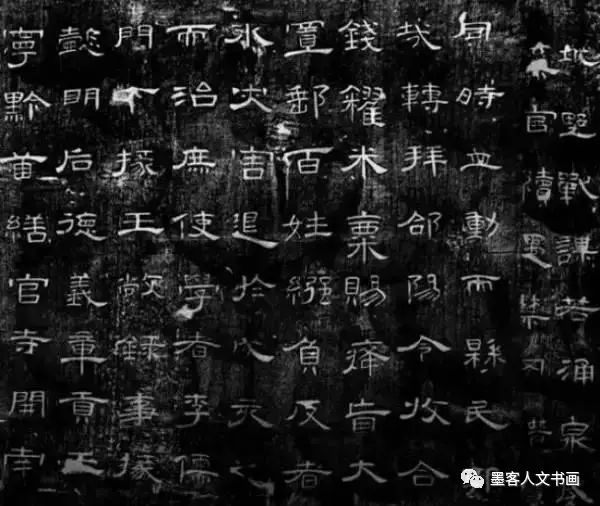 城野戰謀若涌泉威
棄官續遇禁网潛
同時並動而縣民郭
哉轉拜郃陽令收合
錢糴米粟賜癃盲大
置郵百姓繦負反者
水災害退於戌亥之
而治庶使學者李儒
門下掾王敞錄事掾
懿明后德義章貢王
寧黔首繕官寺開南
墨客人文书画